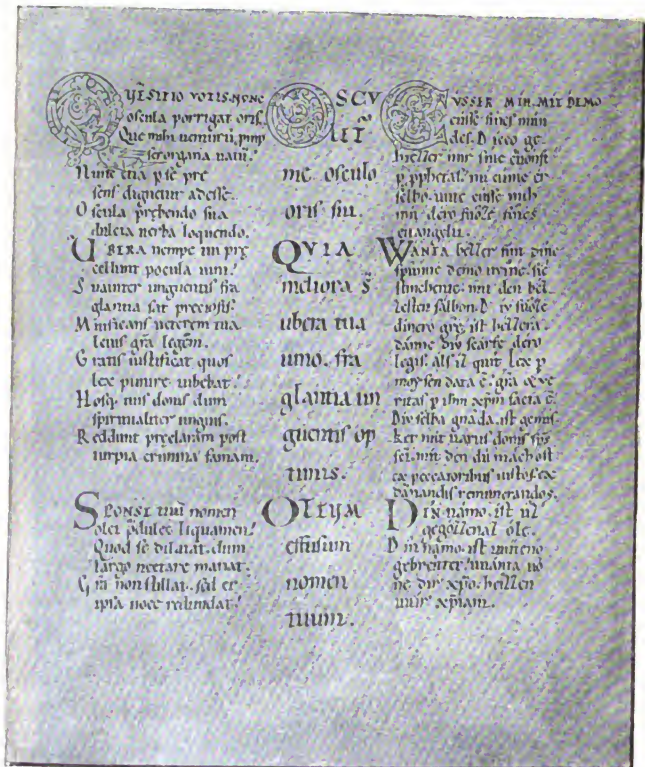 oscula porrigat oris.
sens dignetur adesse.
Oscula prębendo sua
dulcia uerba loquendo.
UBERA nempe tui prę
cellunt pocula uini.
Suauiter unguentis fra
glantia sat preciosis.
ueterem tua
gr̄a legem.
Gratis iustificat quos
lex punire iubebat.
Hosq; tuis donis dum
spiritualiter ungis.
Reddunt pręclaram post
turpia crimina famam.
SPONSE tuum nomen
olei liquamen.
Quod se dilatat. dum
largo nectare manat.
non stillat. sed et
ipsa uoce redundat.
OSCU
LET̄
me osculo
oris sui.
QVIA
meliora s̄
ubera tua
uino. fra
glantia un
guentis op
timis.
OLEUM
effusum
nomen
tuum.
CUSSER MIH. MIT DEMO
cusse sines mun
des. Dicco ge
hiezzer mir sine cuonst
p̄ pphetas. nu cume er
selbo. unte cusse mih
mit dero suoze sines
euangelii.
WANTA bezzer sint dine
spunne demo uuine. sie
stinchente. mit den bez
zesten salbon. Div suoze
dinero gr̄e. ist bezzera.
danne div scarfe dero
legis. als iz quit. Lex p̄
moysen data ē. gr̄a & ue
ritas p̄ ihm xp̄m facta ē.
Div selba gnada. ist gemis
ket mit uariis donis sp̄s
sc̄i. mit den du machost
ex peccatoribus iustos. ex
dānandis remunerandos.
DIN namo. ist uz
gegozzenaz ole.
Din namo. ist uuiteno
gebreitet. uuanta uo
ne dir xp̄o. heizzen
uuir xp̄iani.